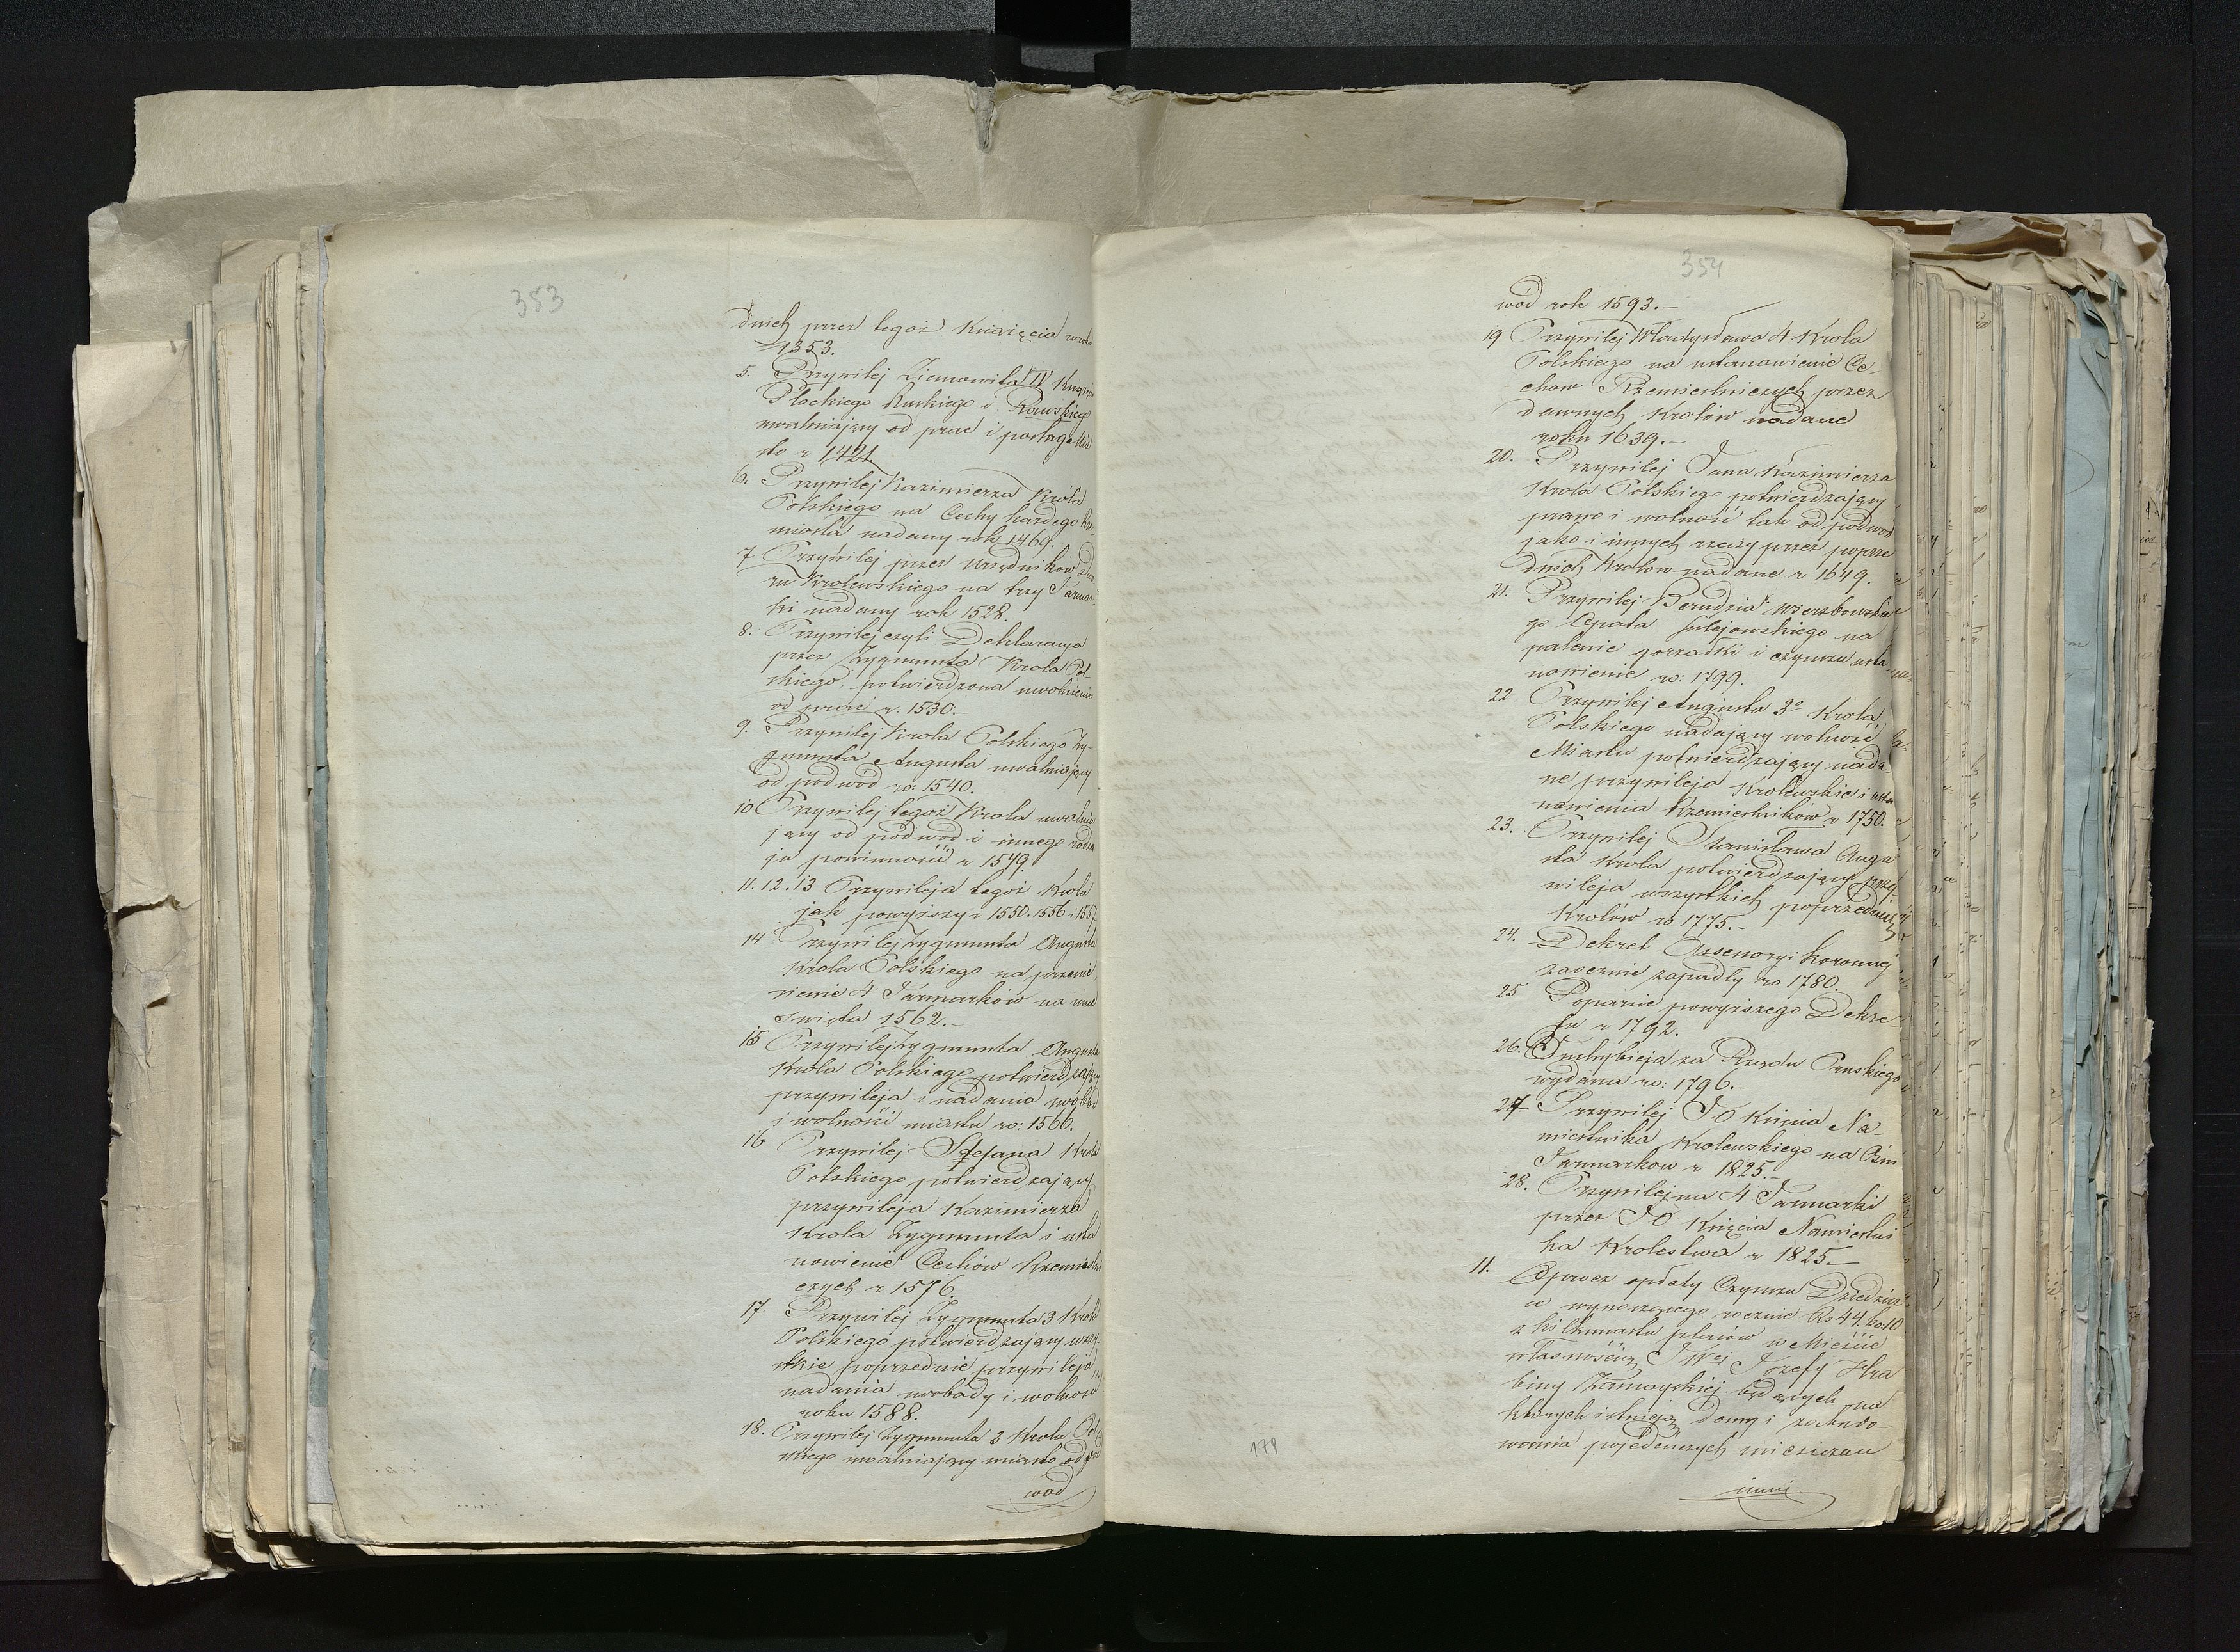 353
dnich przez tegoż Książęcia
1353.
5. Przywilej Ziemowita IV Księcia
Płockiego Ruskiego i Rawskiego
uwalniający od prac i posług Mia
sto r 1421
6. Przywilej Kazimierza Króla
Polskiego na Cechy każdego Rze
miosła nadany rok 1469.
7 Przywilej przez Urzędników
ru Krolewskiego na trzy Jarmar
ki nadany rok 1528.
8. Przywilej czyli Deklaracya
przez Zygmunta Krola Pol-
skiego, potwierdzona uwolnienie
od prac r: 1530.-
9. Przywilej Krola Polskiego Zy-
gmunta Augusta uwalniający
od podwód ro: 1540.
10 Przywilej tegoż Krola uwalnia
jący od podwod i innego rodza
ju powinności r 1549
11.12.13 Przywileja tegoż Krola
jak powyższy r 1550. 1556 i 1557
14 Przywilej Zygmunta Augusta
Krola Polskiego na przenie
sienie 4 Jarmarków na inne
swięta 1562.-
15 Przywilej Zygmunta Augusta
Krola Polskiego potwierdzający
przywileja i nadania swobod
i wolności miastu ro: 1566.
16 Przywilej Stefana Krola
Polskiego potwierdzający
przywileja Kazimierza
Krola Zygmunta i usta
nowienie Cechów Rzemieślni
czych r 1576.
17 Przywilej Zygmunta 3 Krola
Polskiego potwierdzający wszy
stkie poprzednie przywileja
nadania swobody i wolności
roku 1588.
18. Przywilej Zygmunta 3 Krola Pol
skiego uwalniający miasto od pod
wod
354
wód rok 1593.-
19 Przywilej Władysława 4 Krola
Polskiego na ustanawienie Ce-
chow Rzemieslniczych przez
dawnych Krolów nadane
roku 1639.-
20. Przywilej Jana Kazimierza
Krola Polskiego potwierdzający
prawo i wolność tak od podwod
jako i innych rzeczy przez poprze
dnich Krolow nadane r 1649.
21. Przywilej Wierzbowskie
go Opata Sulejowskiego na
palenie gorzałki i czynszu usta
nowienie ro: 1799.
22 Przywilej Augusta 3º Krola
Polskiego nadający wolność
Miastu potwierdzający nada
ne przywileja Krolewskie i usta
nowienia Rzemieslników r 1750.
23. Przywilej Stanisława Augu
sta Krola potwierdzający przy
wileja wszystkich poprzednich
Krolów ro 1775.-
24. Dekret Assessoryi Koronnej
zaocznie zapadły ro 1780.
25 Poparcie powyższego Dekre
tu r 1792.
26. za Rządu Pruskiego
wydana ro: 1796.-
27 Przywilej JO Xięcia Na-
miestnika Krolewskiego na Ośm
Jarmarkow r 1825.-
28. Przywilej na 4 Jarmarki
przez JO Xięcia Namiestni
ka Krolestwa r 1825-
11. Oprocz opłaty Czynszu Dziedzict
wynoszącego rocznie Rs 44. ko 10
z kilkunastu placów w Mieście
własnością JWej Jozefy Hra
biny Zamoyskiej będących na
których istnieją domy i zabudo
wania pojedenczych mieszczan
inni
179